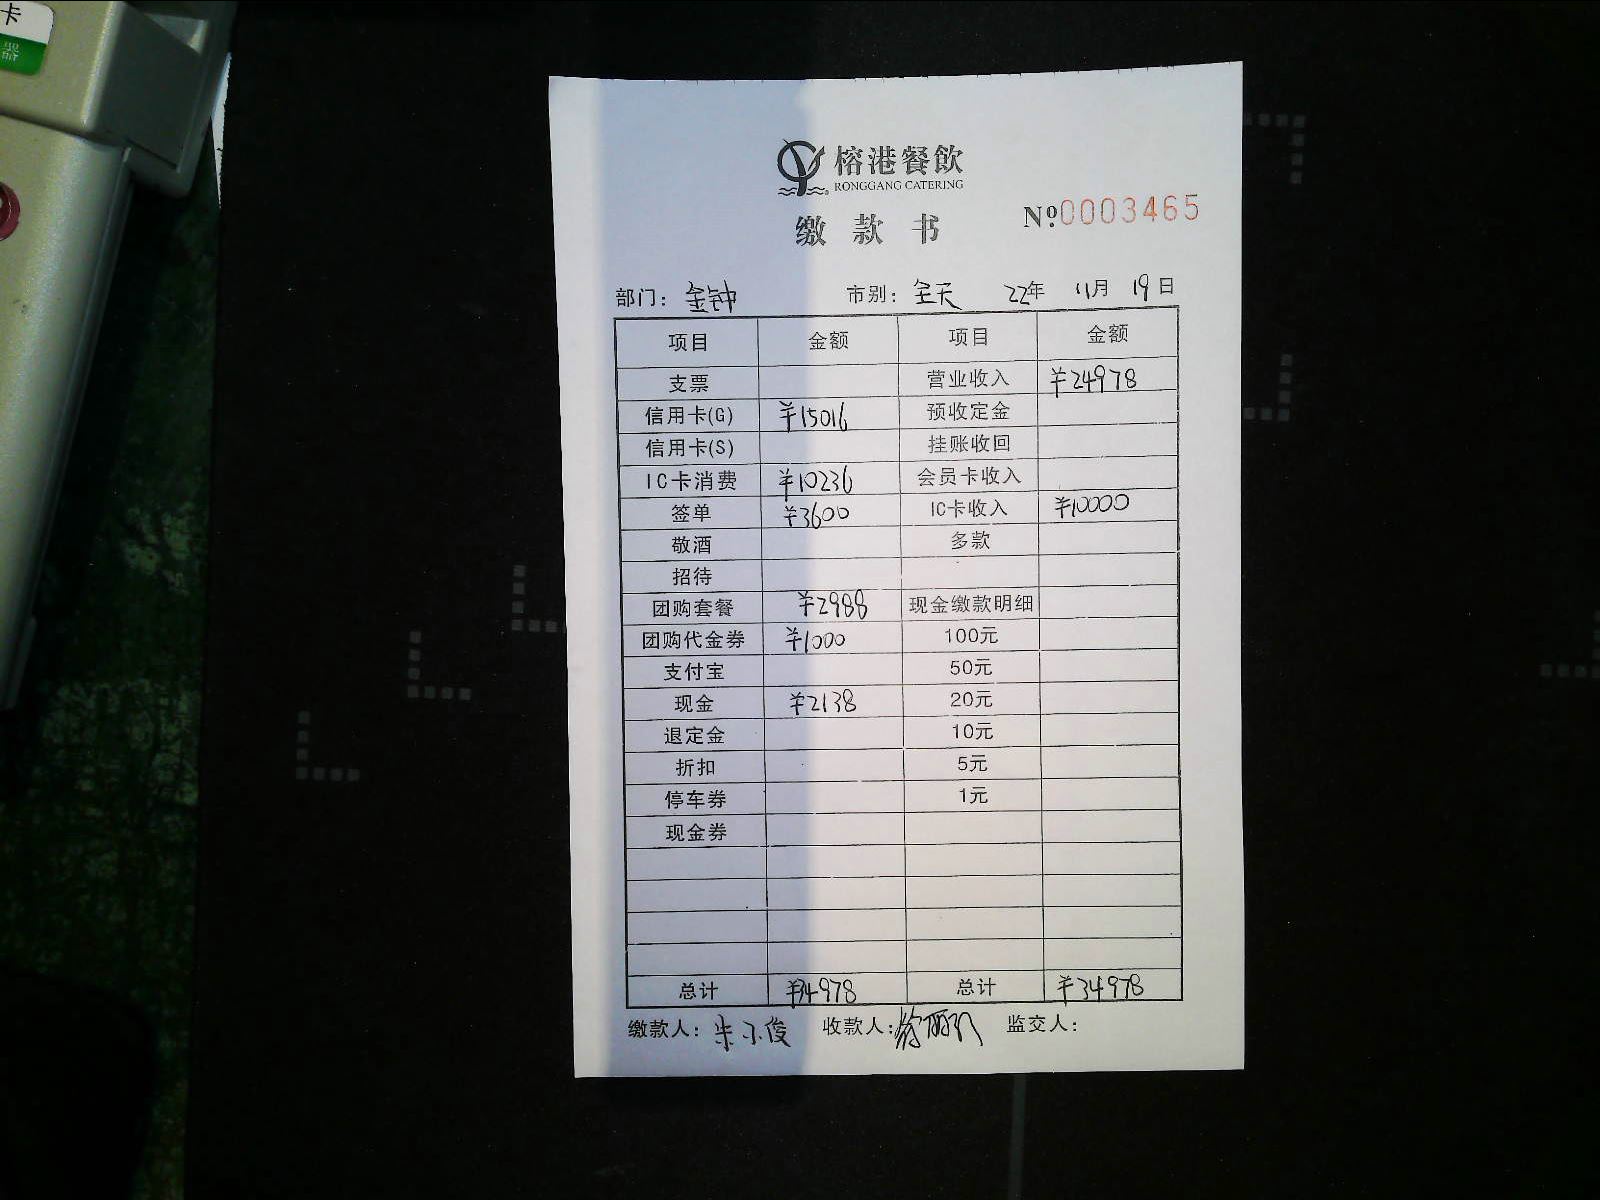 卡
器
榕港餐飲
RONGGANG CATERING
缴款书
№0003465
部门：金钟 市别：全天 22年 11月 19日
项目 金额 项目 金额
支票 营业收入 ¥24978
信用卡(G) ¥15016 预收定金
信用卡(S) 挂账收回
IC卡消费 ¥10236 会员卡收入
签单 ¥3600 IC卡收入 ¥10000
敬酒 多款
招待
团购套餐 ¥2988 现金缴款明细
团购代金券 ¥1000 100元
支付宝 50元
现金 ¥2138 20元
退定金 10元
折扣 5元
停车券 1元
现金券
总计 ¥34978 总计 ¥34978
缴款人：朱小俊 收款人： 监交人：